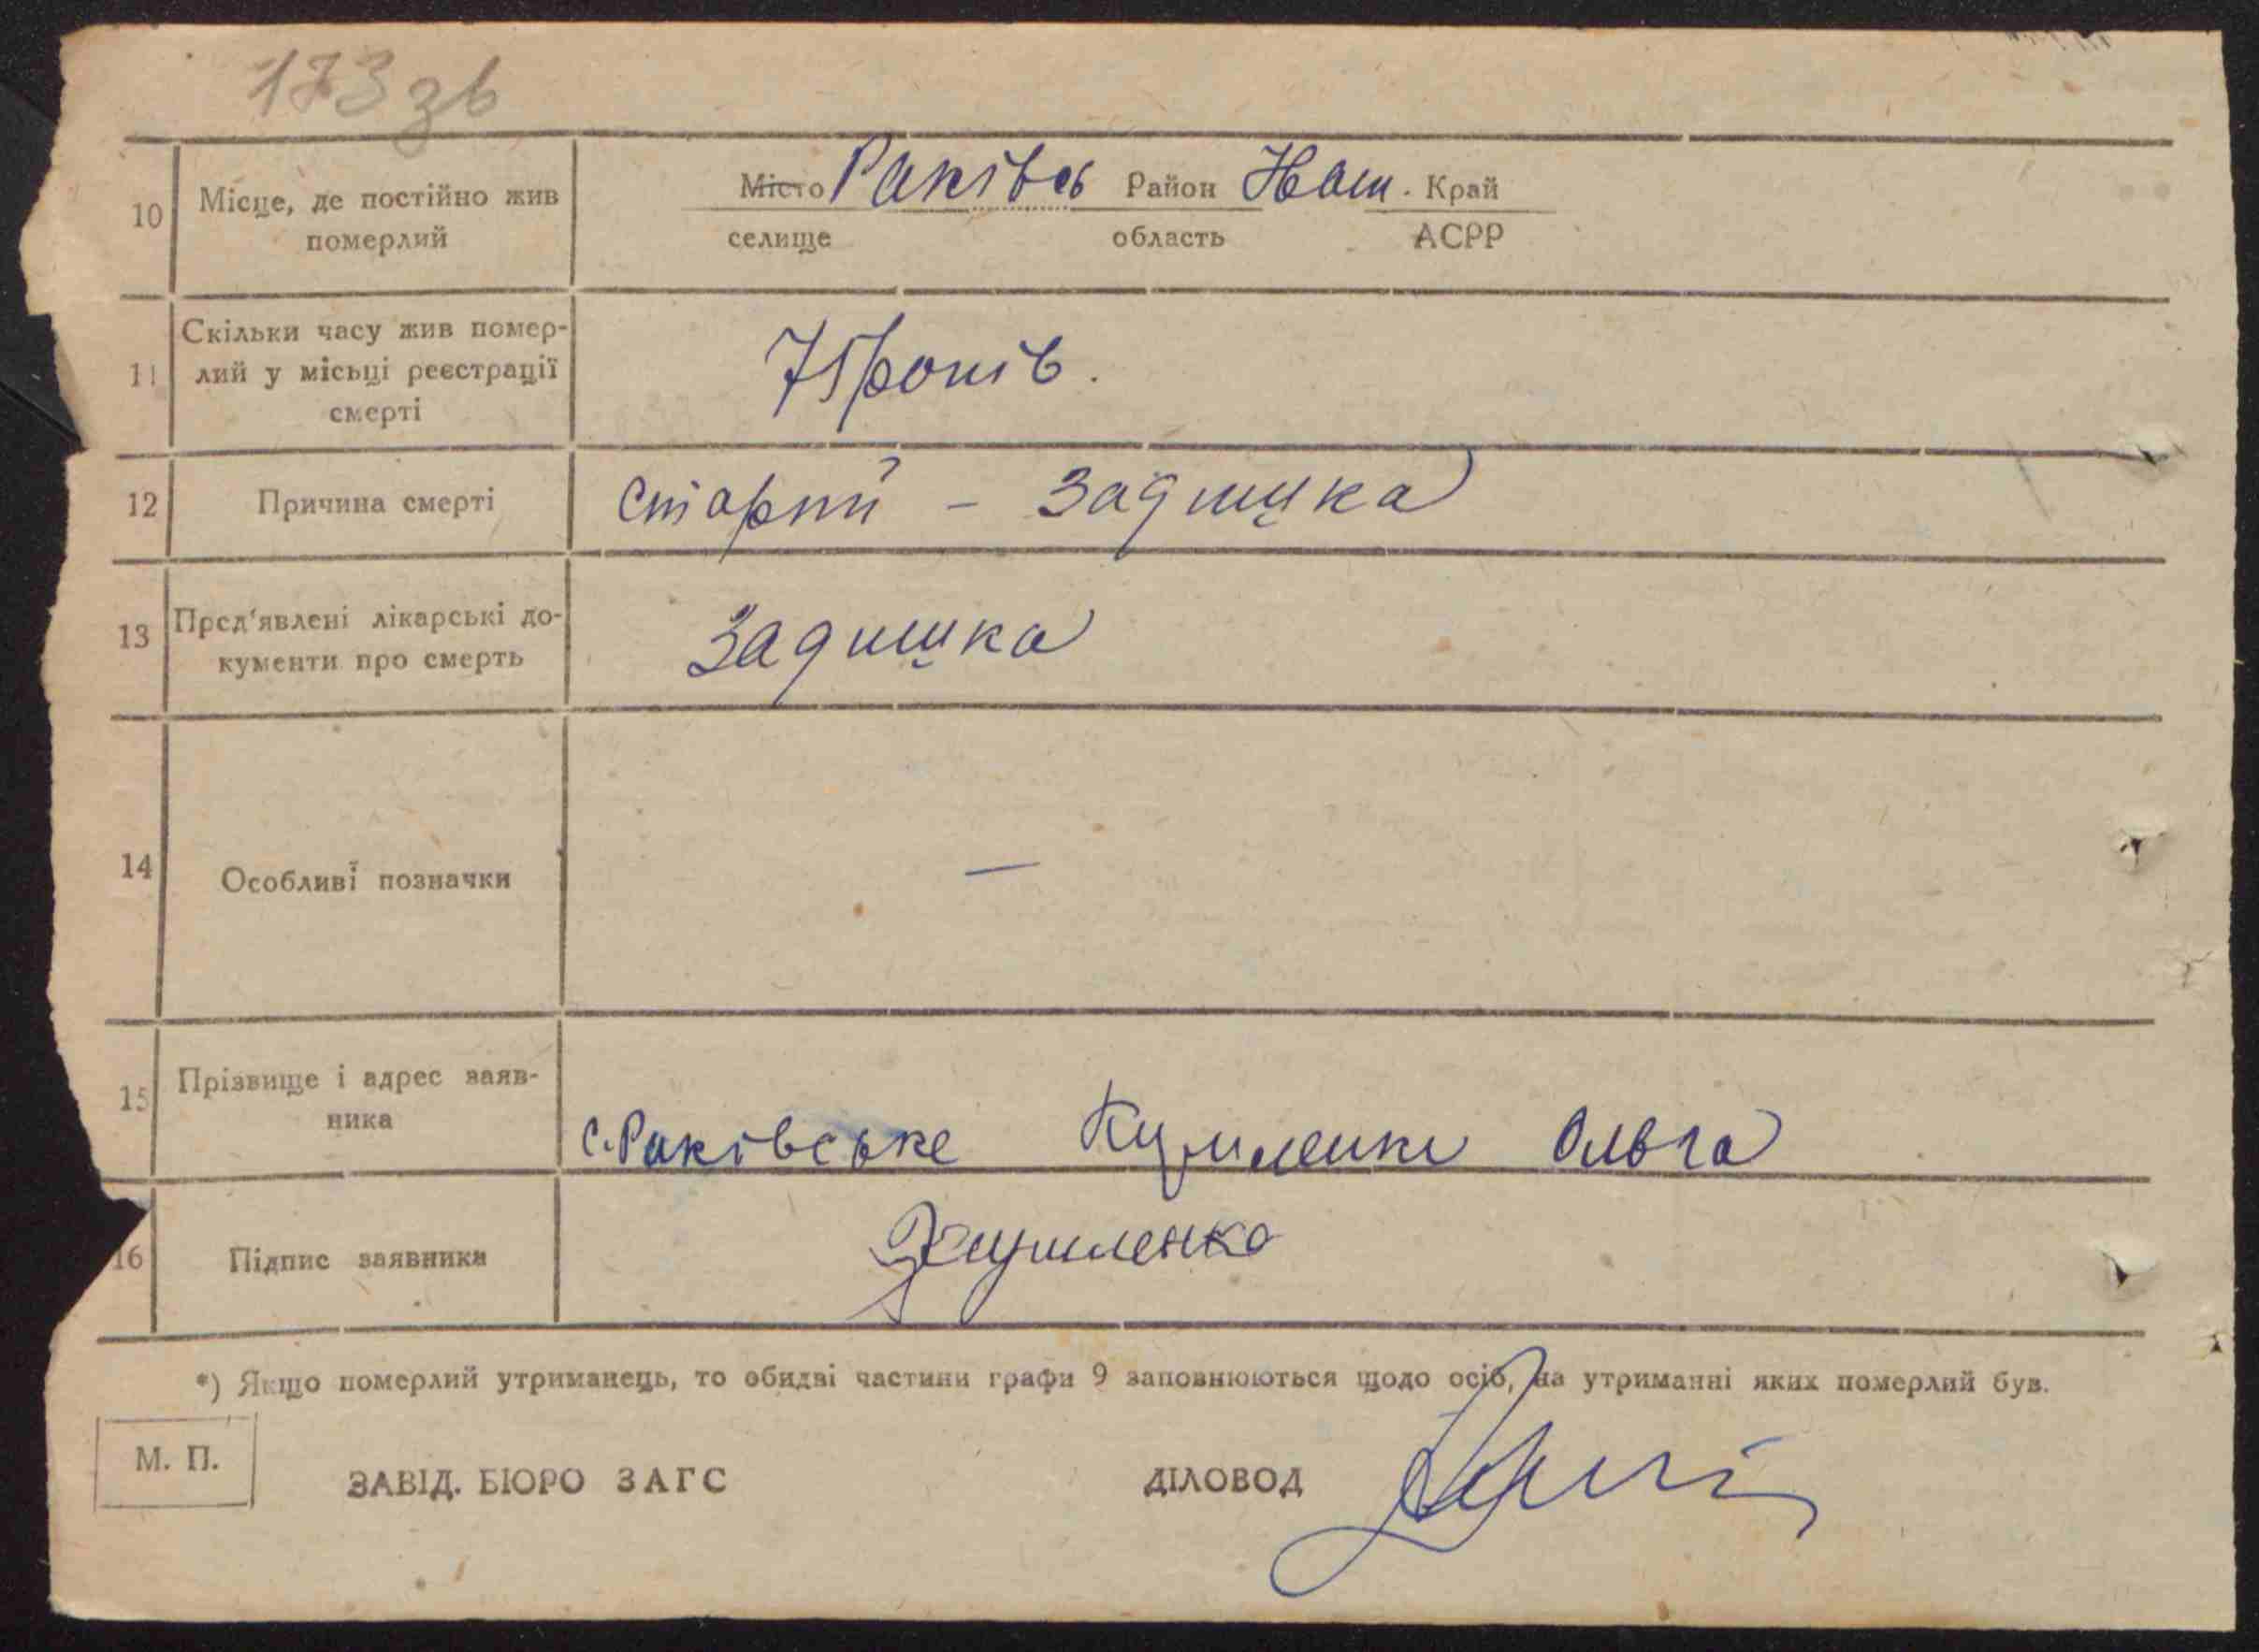 173 зв
10
Місце, де постійно жив
померлий
Місто Раківсь Район Наш. Край
селище область АСРР
11
Скільки часу жив помер-
лий у місьці реєстрації
смерті
75 років.
12
Причина смерті
старий - задишка
13
Пред'явлені лікарські до-
кументи про смерть
задишка
14
Особливі позначки
—
15
Прізвище і адрес заяв-
ника
с. Раківське Ольга
16
Підпис заявника
*) Якщо померлий утриманець, то обидві частини графи 9 заповнюються щодо осіб, на утриманні яких померлий був.
М. П.
ЗАВІД. БЮРО ЗАГС
ДІЛОВОД